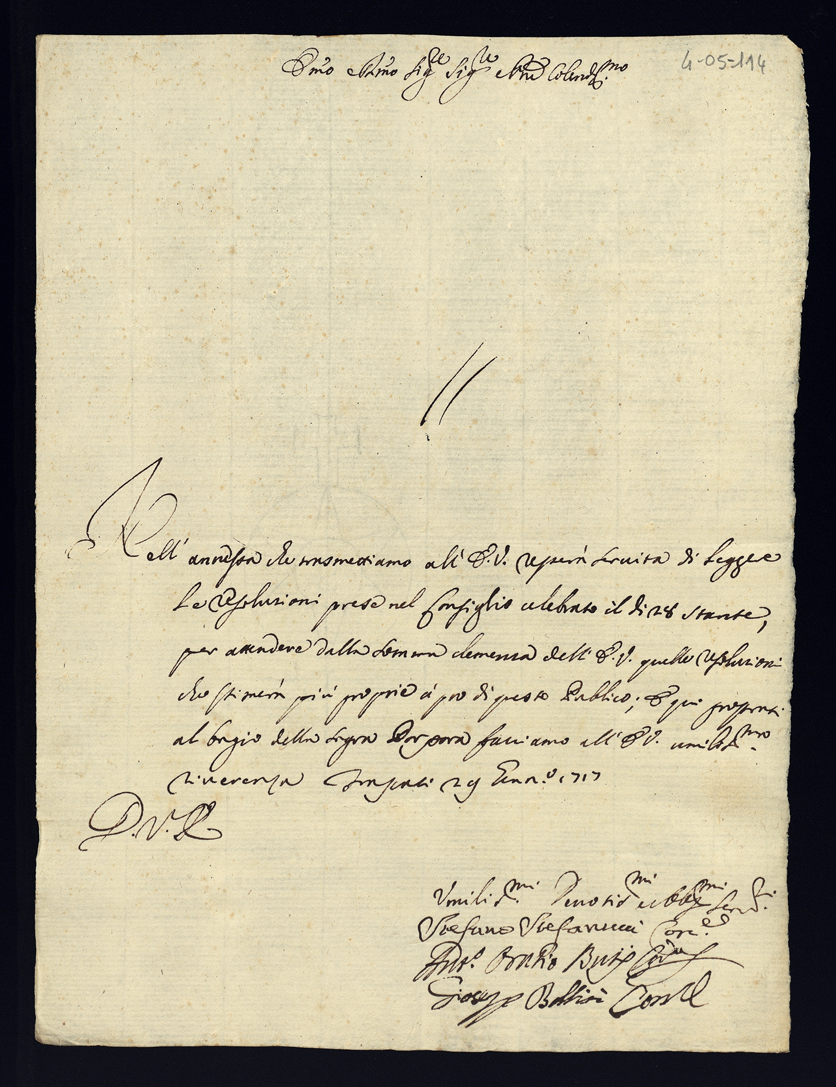 4-05-114
Emo e Rmo Sig.re Sig.re e Pne Colend.mo
Nell' annessa che trasmettiamo all' E.V. resterà servita di leggere
le resoluzioni prese nel Consiglio celebrato il dì 28 stante,
per attendere dalla somma clemenza dell' E.V. quelle resoluzioni
che stimerà più proprie à prò di questo Publico; E qui prostrati
al bagio della Sagra Porpora facciamo all' E.V. umiliss.mo
riverenza 29 Genn.o 1717
D.V.E.
Umiliss.mi Devotiss.mi et Obblig.mi Serv.ri
Stefano Stefanucci
Ant.o Orazio
Gioseppe